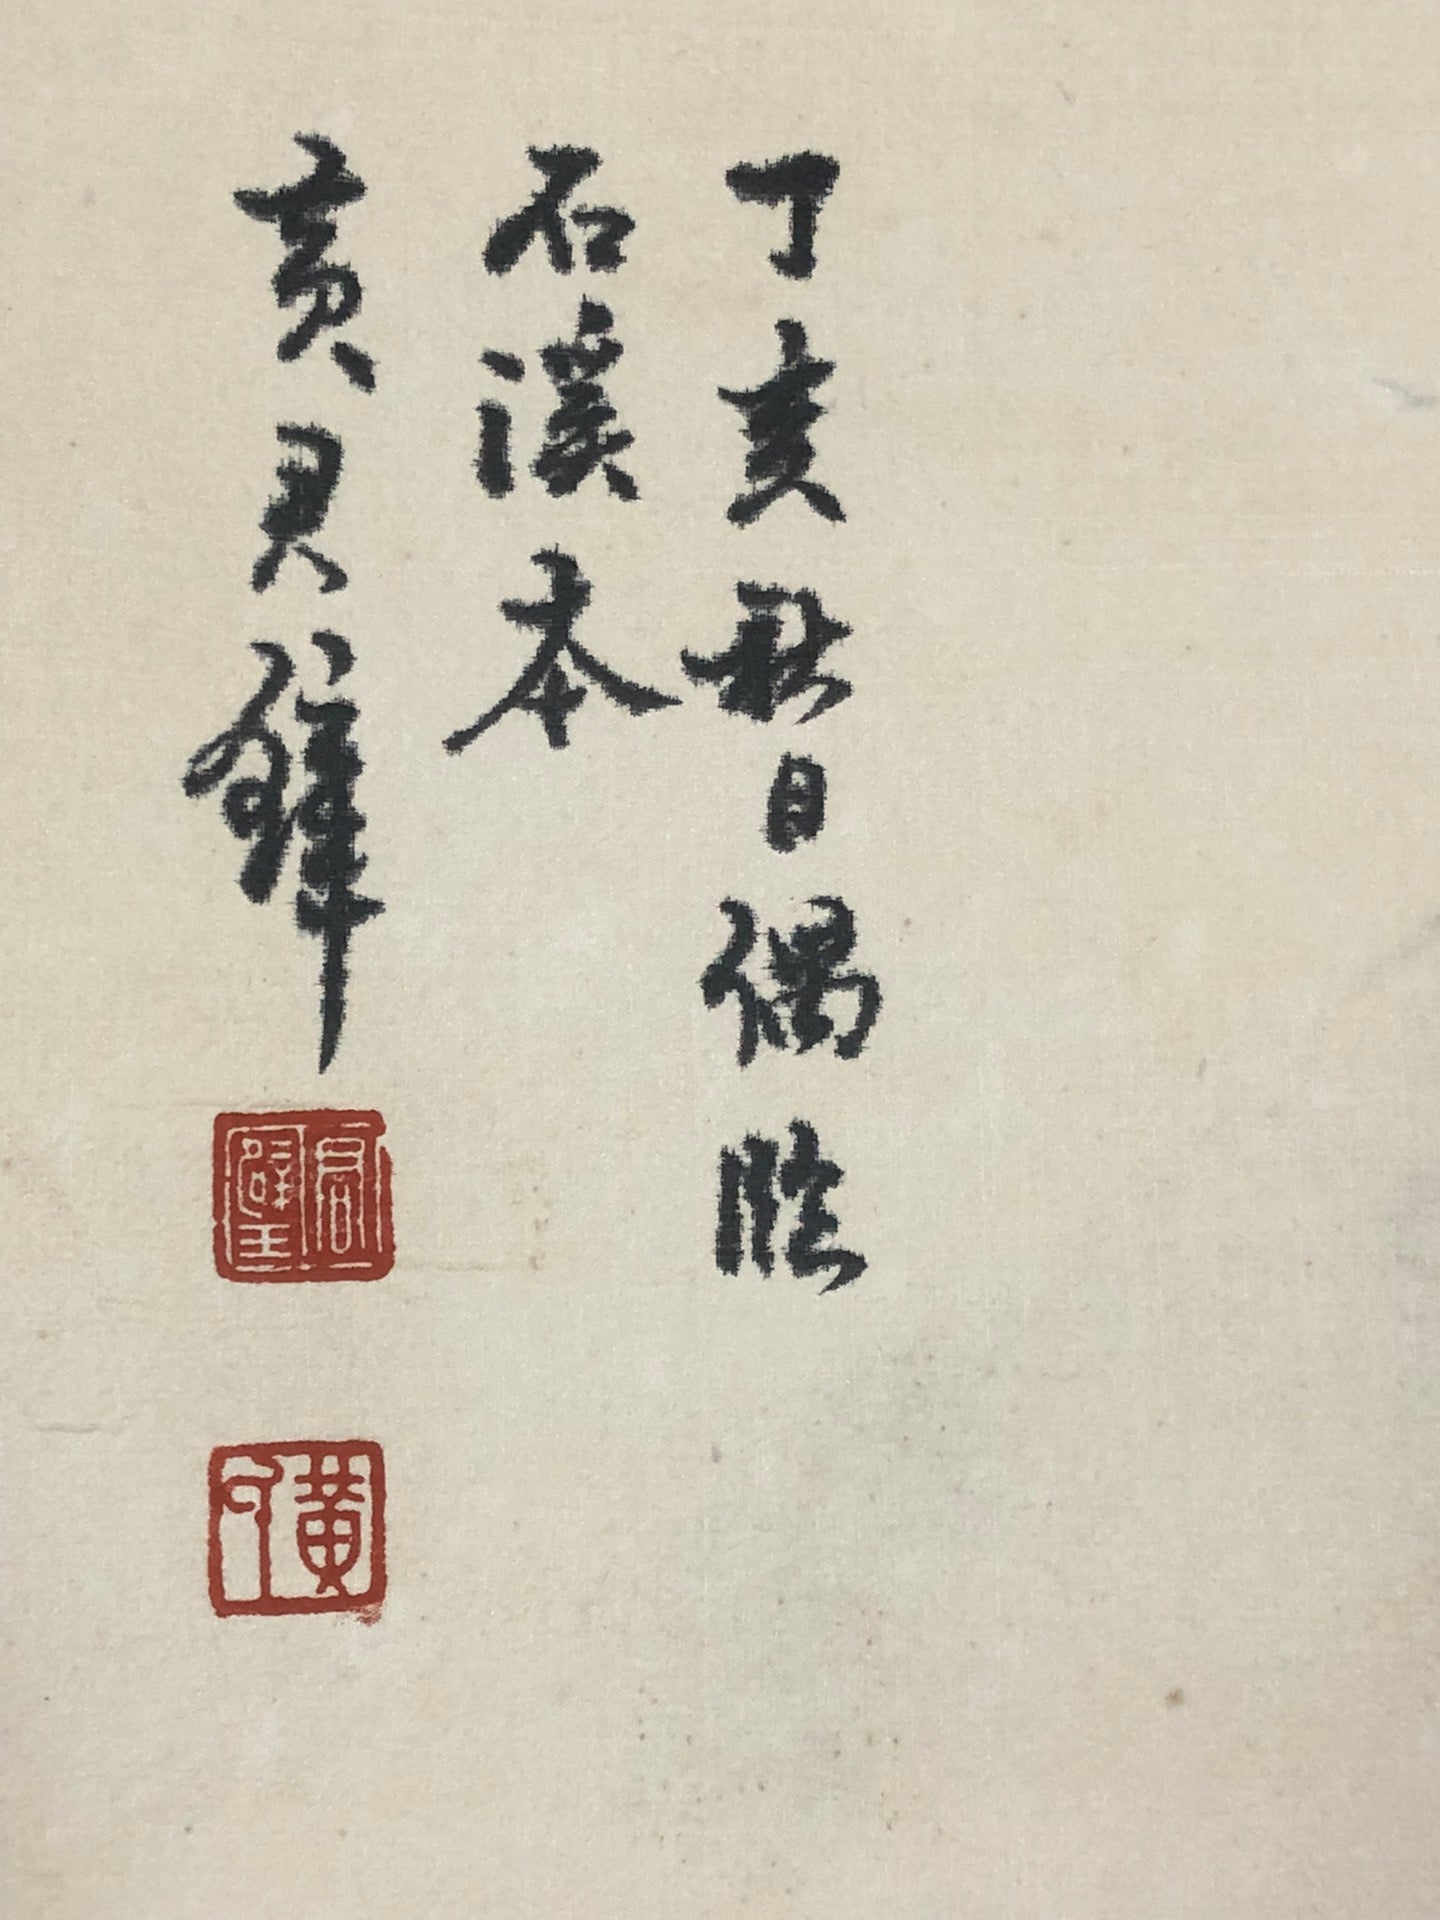 丁亥秋日偶臨
石溪本
黄君璧
君璧
黄